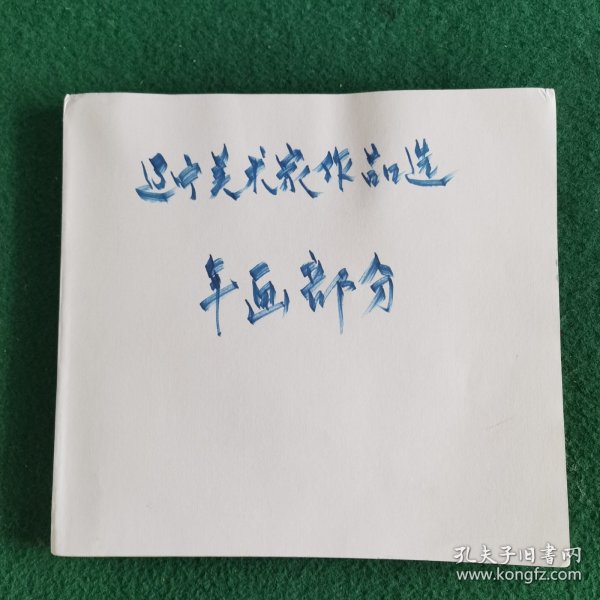 辽宁美术家作品选
年画部分
孔夫子旧書网
www.kongfz.com